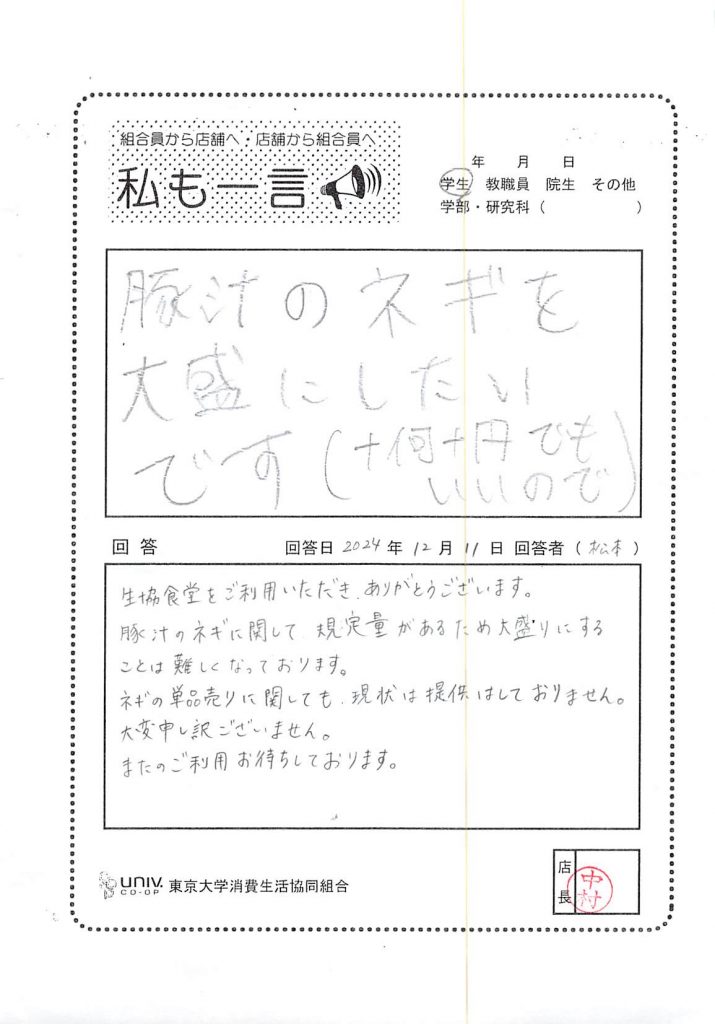 組合員から店舗へ・店舗から組合員へ
私も一言
年 月 日
学生 教職員 院生 その他
学部・研究科（ ）
豚汁のネギを
大盛にしたい
です(+何十円でも
いいので)
回答 回答日 2024 年 12 月 11 日 回答者（松本）
生協食堂をご利用いただき、ありがとうございます。
豚汁のネギに関して、規定量があるため大盛りにする
ことは難しくなっております。
ネギの単品売りに関しても、現状は提供はしておりません。
大変申し訳ございません。
またのご利用お待ちしております。
UNIV. CO-OP 東京大学消費生活協同組合
店長 中村